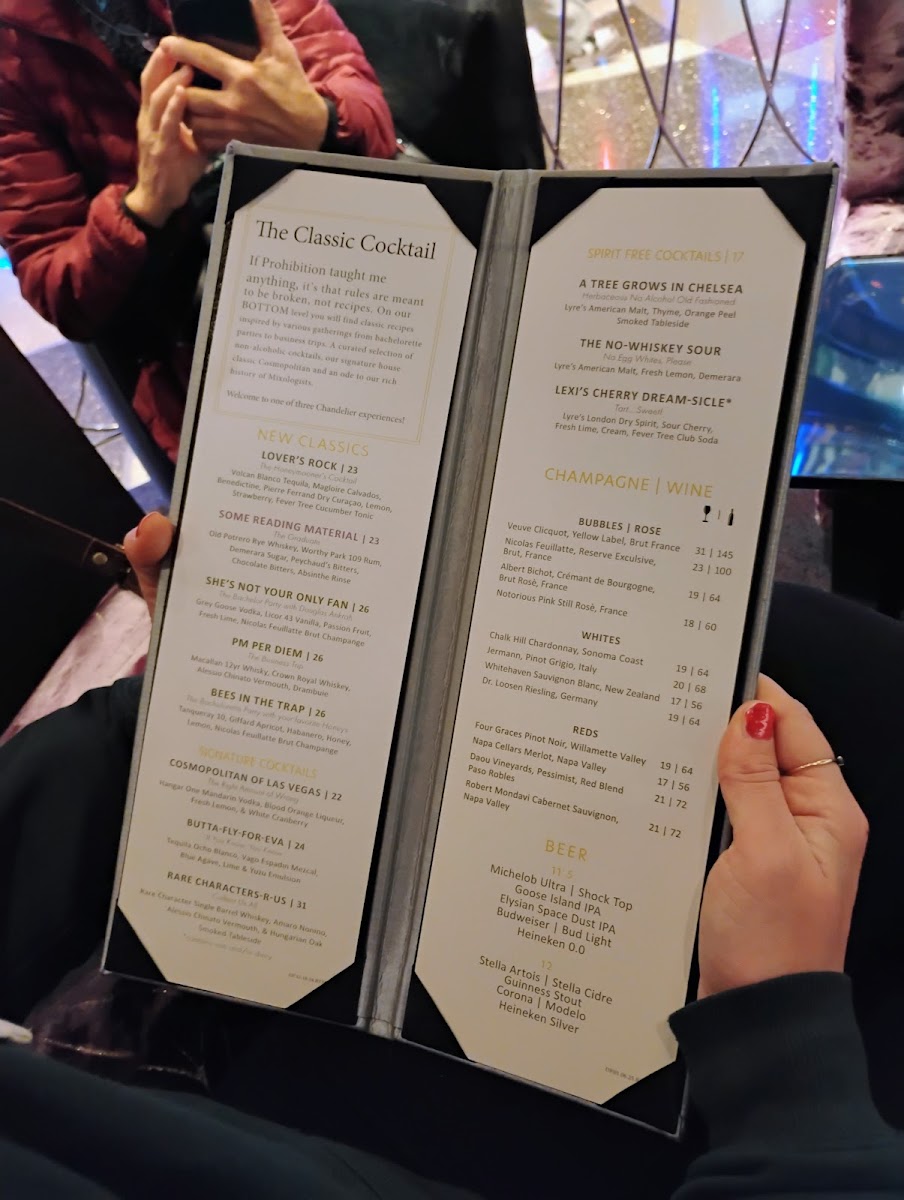 The Classic Cocktail
If Prohibition taught me
anything, it's that rules are meant
to be broken, not recipes. On our
BOTTOM level you will find classic recipes
inspired by various gatherings from bachelorette
parties to business trips. A curated selection of
non-alcoholic cocktails, our signature house
classic Cosmopolitan and an ode to our rich
history of Mixologists.
Welcome to one of three Chandelier experiences!
NEW CLASSICS
LOVER'S ROCK | 23
The Honeymooner's Cocktail
Volcan Blanco Tequila, Magloire Calvados,
Benedictine, Pierre Ferrand Dry Curaçao, Lemon,
Strawberry, Fever Tree Cucumber Tonic
SOME READING MATERIAL | 23
The Graduate
Old Potrero Rye Whiskey, Worthy Park 109 Rum,
Demerara Sugar, Peychaud's Bitters,
Chocolate Bitters, Absinthe Rinse
SHE'S NOT YOUR ONLY FAN | 26
The Bachelor Party with Douglas
Grey Goose Vodka, Licor 43 Vanilla, Passion Fruit,
Fresh Lime, Nicolas Feuillatte Brut Champange
PM PER DIEM | 26
The Business Trip
Macallan 12yr Whisky, Crown Royal Whiskey,
Alessio Chinato Vermouth, Drambuie
BEES IN THE TRAP | 26
The Bachelorette Party with your favorite Honeys
Tanqueray 10, Giffard Apricot, Habanero, Honey,
Lemon, Nicolas Feuillatte Brut Champange
SIGNATURE COCKTAILS
COSMOPOLITAN OF LAS VEGAS | 22
The Right Amount of Wrong
Hangar One Mandarin Vodka, Blood Orange Liqueur,
Fresh Lemon, & White Cranberry
BUTTA-FLY-FOR-EVA | 24
If You Know, You Know
Tequila Ocho Blanco, Vago Espadin Mezcal,
Blue Agave, Lime & Yuzu Emulsion
RARE CHARACTERS-R-US | 31
Rare Character Single Barrel Whiskey, Amaro Nonino,
Alessio Chinato Vermouth, & Hungarian Oak
Smoked Tableside
SPIRIT FREE COCKTAILS | 17
A TREE GROWS IN CHELSEA
Herbaceous No Alcohol Old Fashioned
Lyre's American Malt, Thyme, Orange Peel
Smoked Tableside
THE NO-WHISKEY SOUR
No Egg Whites, Please
Lyre's American Malt, Fresh Lemon, Demerara
LEXI'S CHERRY DREAM-SICLE*
Tart... Sweet!
Lyre's London Dry Spirit, Sour Cherry,
Fresh Lime, Cream, Fever Tree Club Soda
CHAMPAGNE | WINE
BUBBLES | ROSE
Veuve Clicquot, Yellow Label, Brut France 31 | 145
Nicolas Feuillatte, Reserve Exculsive, 23 | 100
Brut, France
Albert Bichot, Crémant de Bourgogne, 19 | 64
Brut Rosè, France
Notorious Pink Still Rosè, France 18 | 60
WHITES
Chalk Hill Chardonnay, Sonoma Coast 19 | 64
Jermann, Pinot Grigio, Italy 20 | 68
Whitehaven Sauvignon Blanc, New Zealand 17 | 56
Dr. Loosen Riesling, Germany 19 | 64
REDS
Four Graces Pinot Noir, Willamette Valley 19 | 64
Napa Cellars Merlot, Napa Valley 17 | 56
Daou Vineyards, Pessimist, Red Blend 21 | 72
Paso Robles
Robert Mondavi Cabernet Sauvignon, 21 | 72
Napa Valley
BEER
11.5
Michelob Ultra | Shock Top
Goose Island IPA
Elysian Space Dust IPA
Budweiser | Bud Light
Heineken 0.0
12
Stella Artois | Stella Cidre
Guinness Stout
Corona | Modelo
Heineken Silver